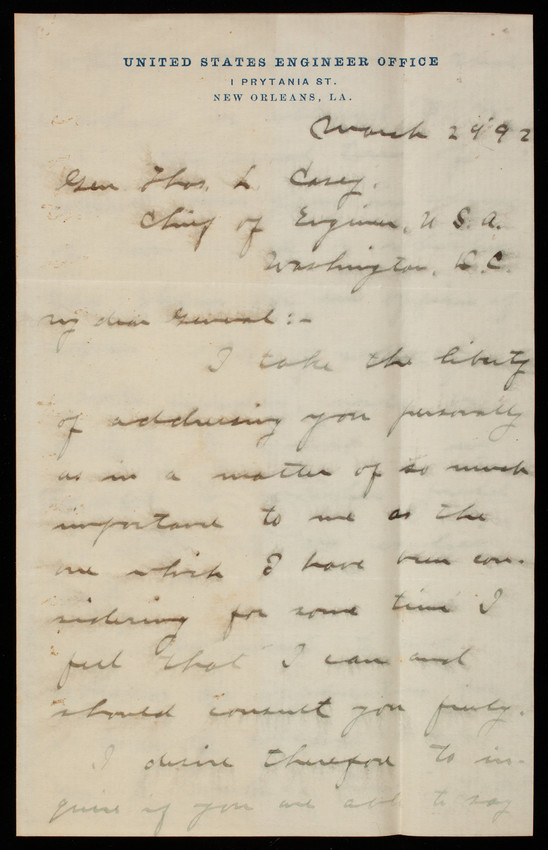 UNITED STATES ENGINEER OFFICE
1 PRYTANIA ST.
NEW ORLEANS, LA.
March 29 '92
Gen Thos. L Casey.
Chief of Engineers, U. S. A.
Washington, D. C.
My dear General:-
I take the liberty
of addressing you personally
as in a matter of so much
importance to me as the
one which I have been con-
sidering for some time I
feel that I can and
should consult you freely.
I desire therefore to in-
quire if you are able to say